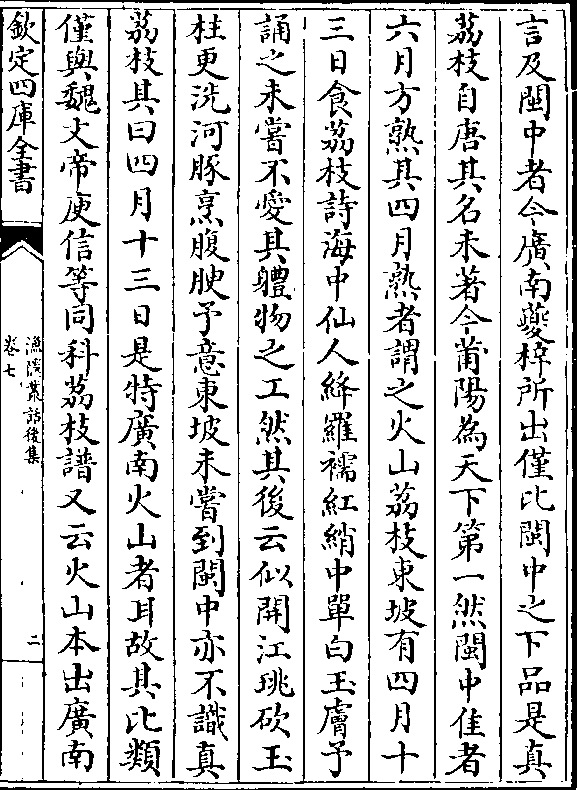 言及閩中者今廣南夔梓所出僅比閩中之下品是真
荔枝自唐其名未著今莆陽為天下第一然閩中佳者
六月方熟其四月熟者謂之火山荔枝東坡有四月十
三日食荔枝詩海中仙人絳羅襦紅綃中單白玉膚予
誦之未嘗不愛其軆物之工然其後云似開江珧砍玉
柱更洗河豚烹腹腴予意東坡未嘗到閩中亦不識真
荔枝其曰四月十三日是特廣南火山者耳故其比類
僅與魏文帝庾信等同科荔枝譜又云火山本出廣南
欽定四庫全書
漁隱叢話後集
卷七
二